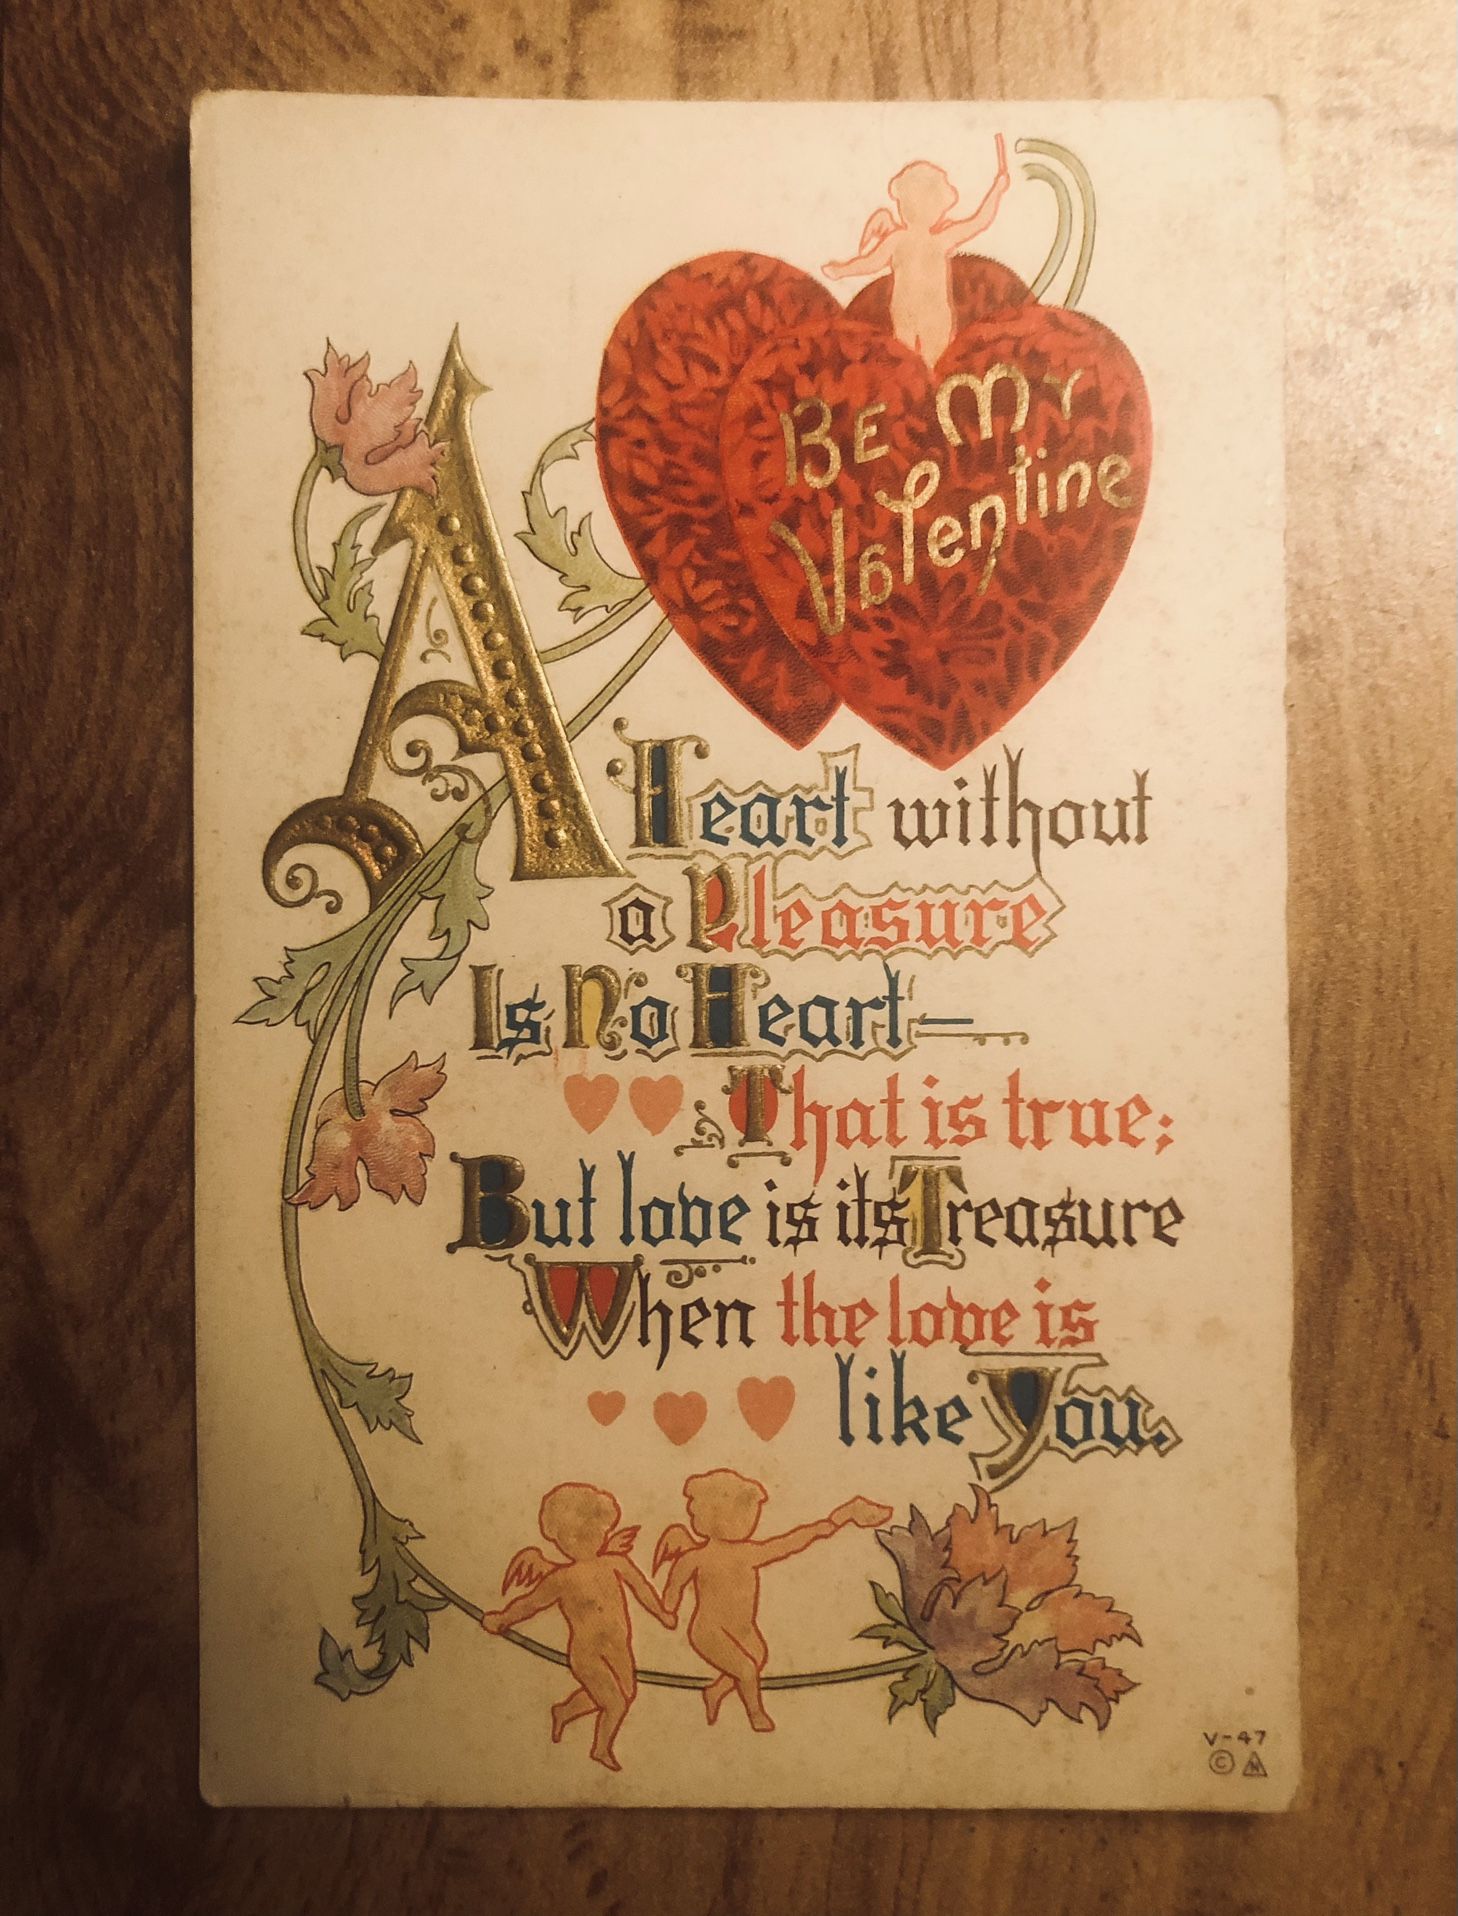 Be My
Valentine
A Heart without
a Pleasure
Is No Heart—
That is true;
But love is its Treasure
When the love is
like You.
V-47
© N